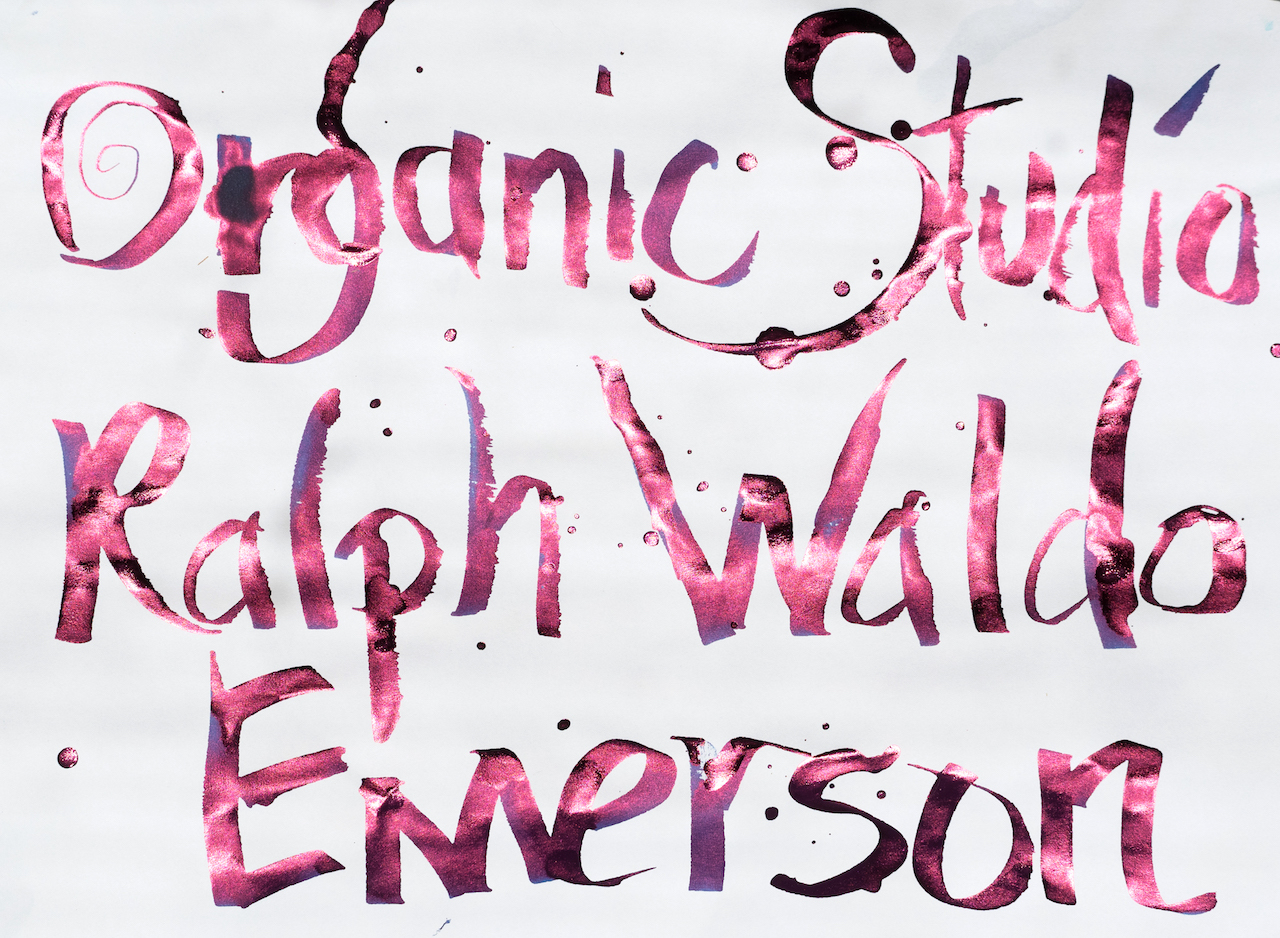 Organic Studio
Ralph Waldo
Emerson